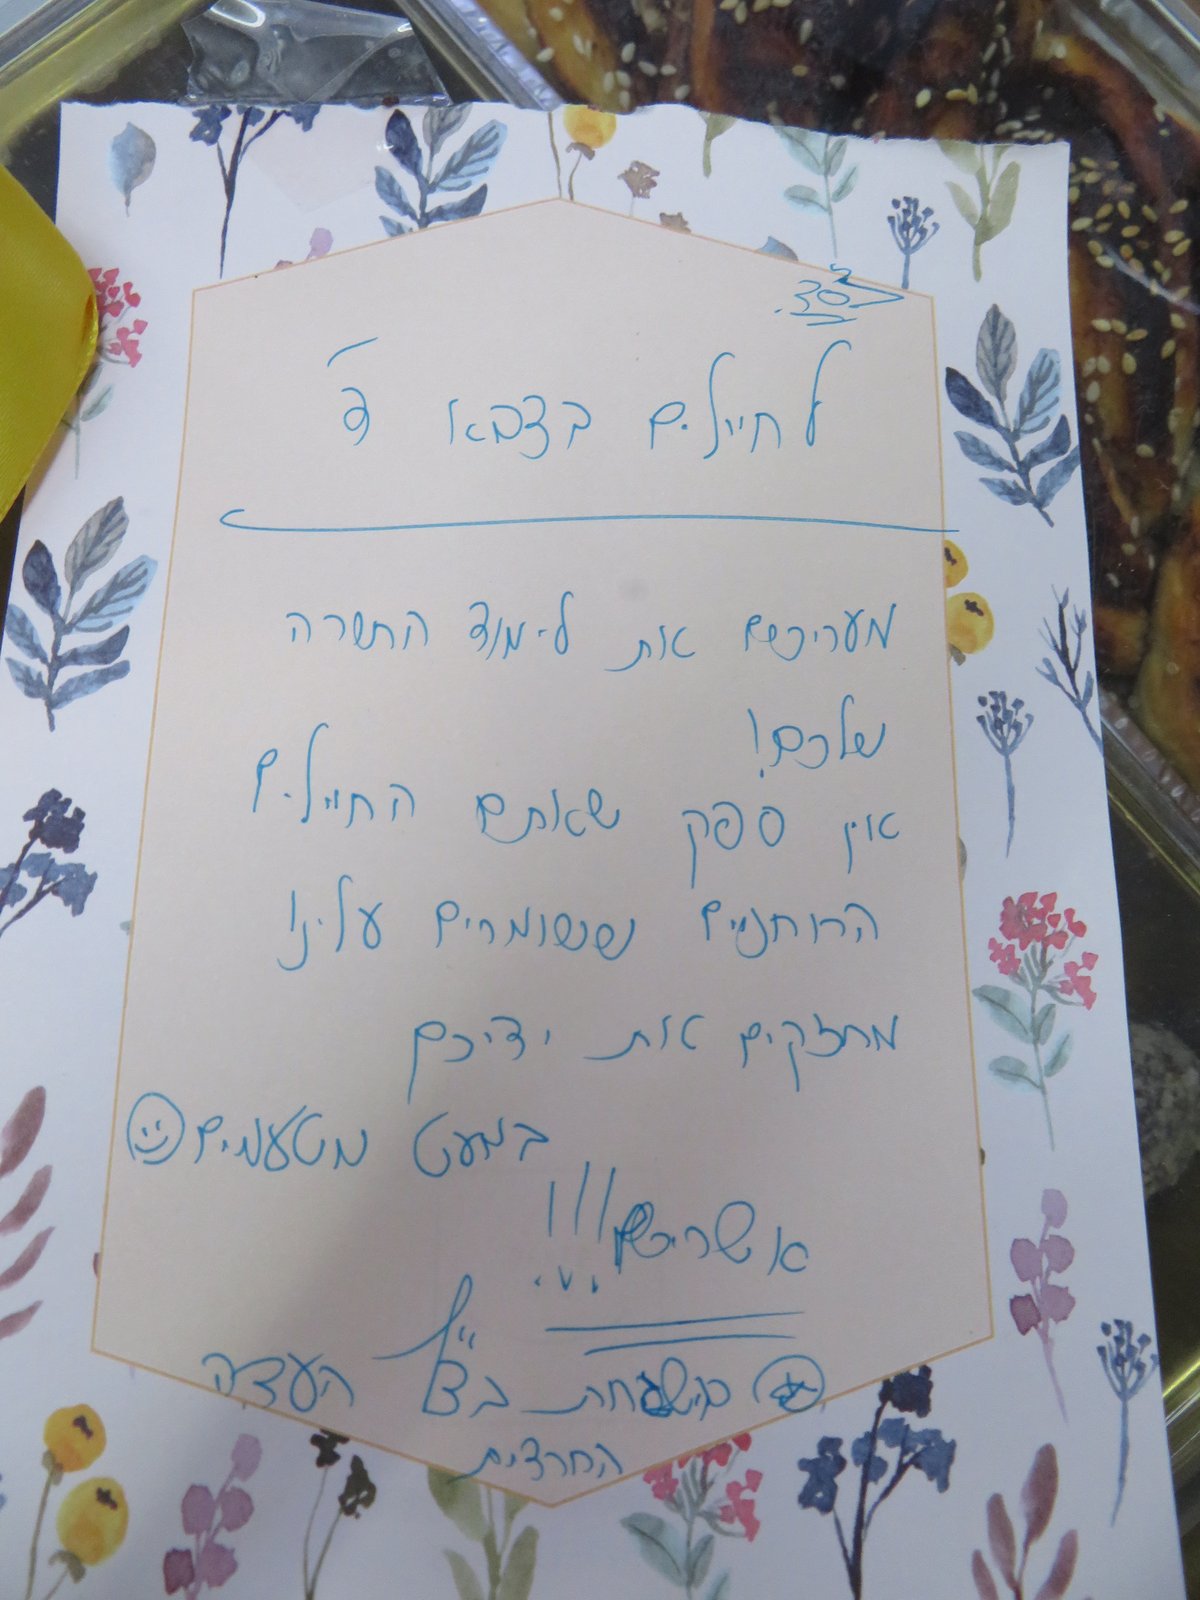 בס"ד
לחיילים בצבא ה'
מעריכים את לימוד התורה
שלכם!
אין ספק שאתם החיילים
הרוחניים ששומרים עלינו
מחזקים את ידיכם
במעט מטעמים
אשריכם!!!
בהשגחת בד"ץ העדה
החרדית